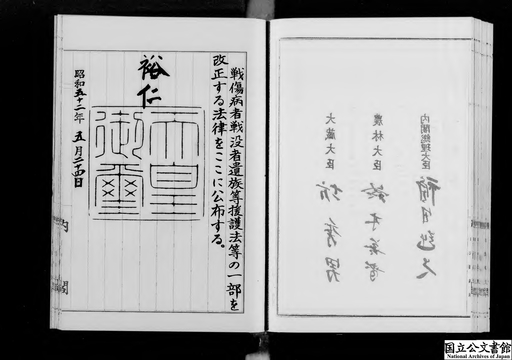 内閣総理大臣 福田赳夫
農林大臣 鈴木善幸
大蔵大臣 坊秀男
戦傷病者戦没者遺族等援護法等の一部を
改正する法律をここに公布する。
裕仁
天皇
御璽
昭和五十二年 五月二十四日
内閣
国立公文書館
National Archives of Japan